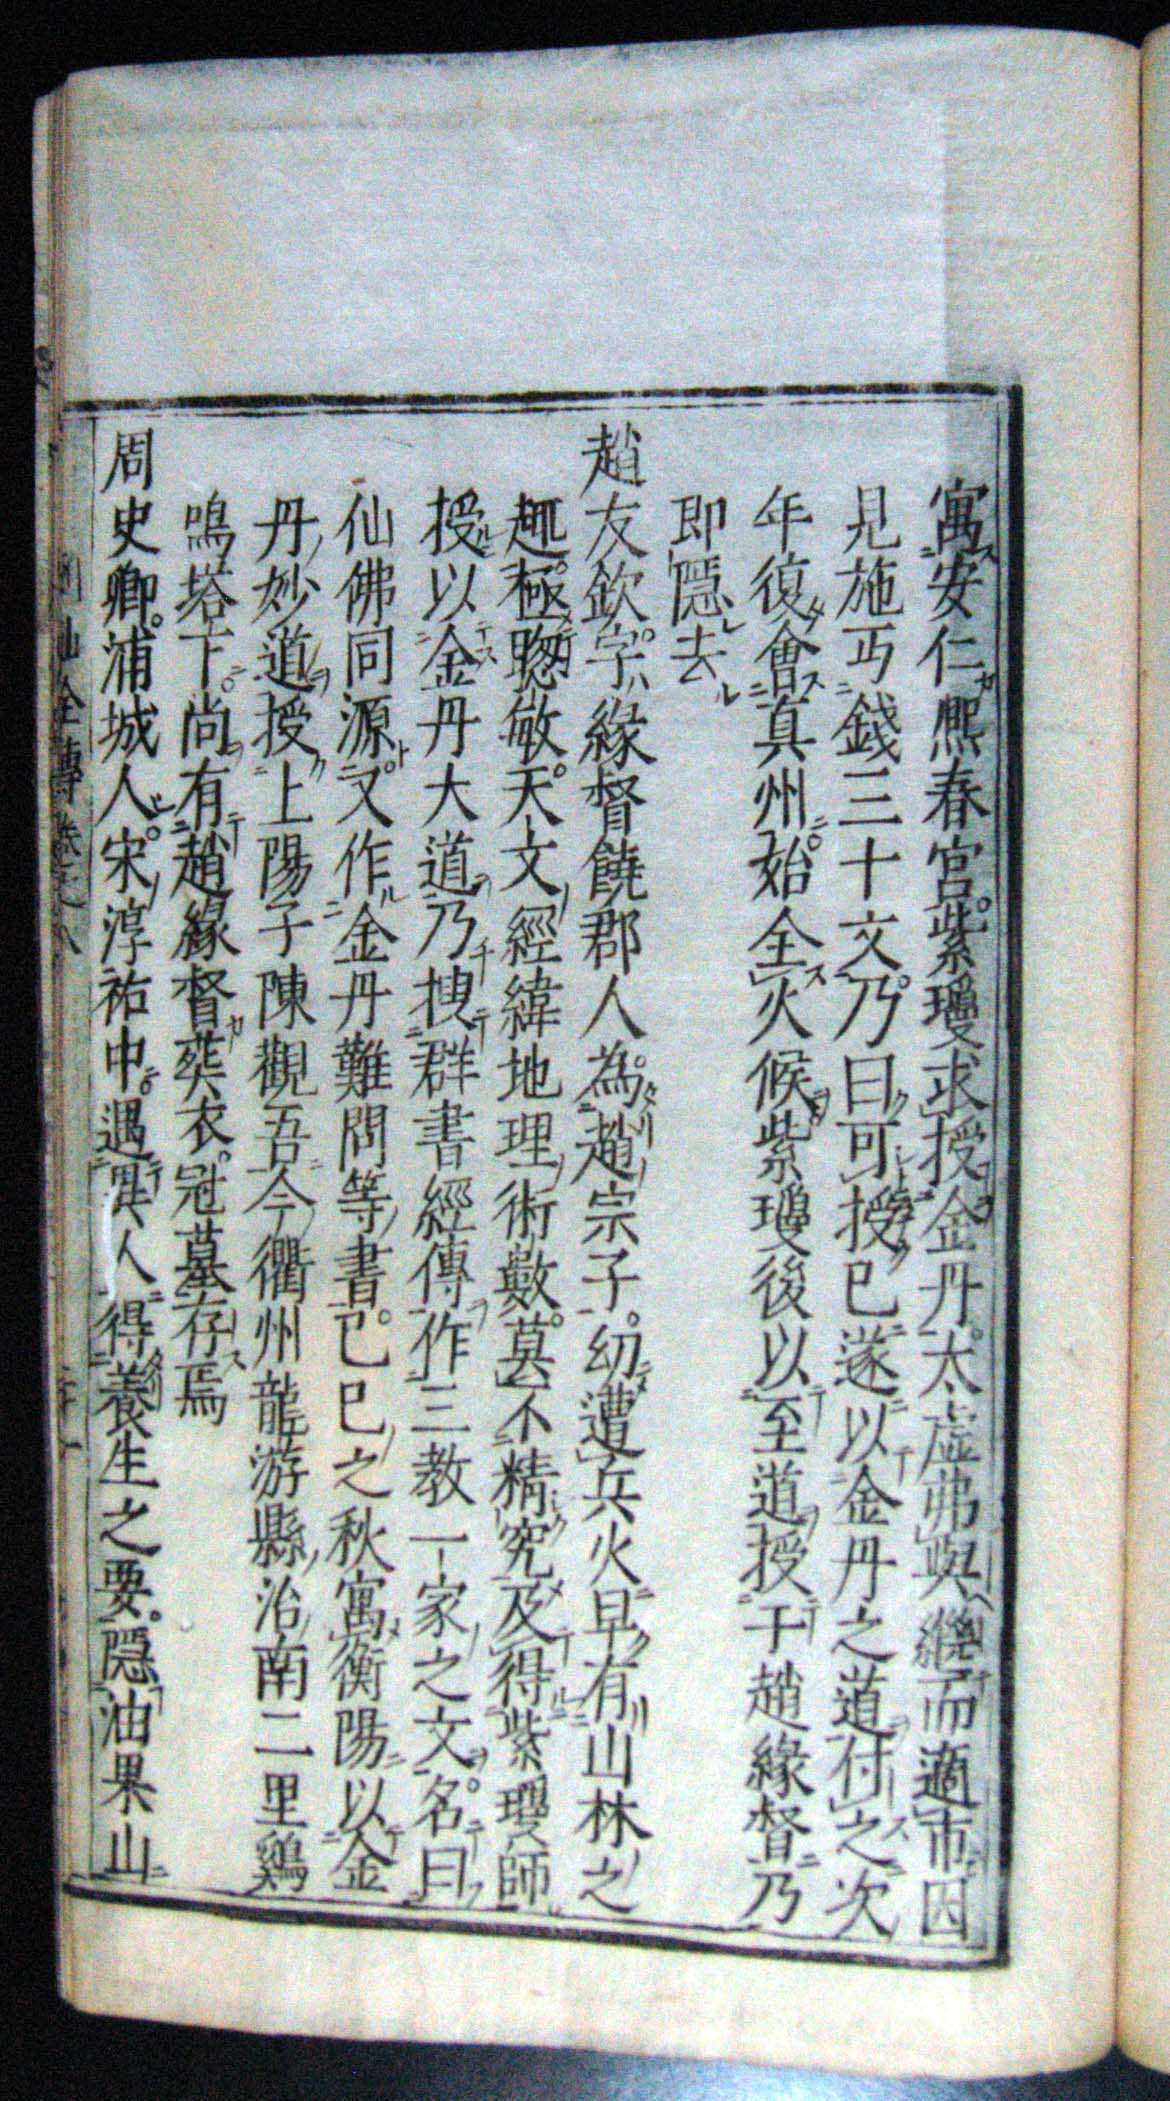 寓安仁熈春宮紫瓊求授金丹太虛弗與繼而適市因
見施丐錢三十文乃曰可授已遂以金丹之道付之次
年復會真州始全火候紫瓊後以至道授于趙緣督乃
即隱去
趙友欽字緣督饒郡人為趙宗子幼遭兵火早有山林之
趣極聰敏天文經緯地理術數莫不精究及得紫瓊師
授以金丹大道乃搜群書經傳作三教一家之文名曰
仙佛同源又作金丹難問等書已巳之秋寓衡陽以金
丹妙道授上陽子陳觀吾今衢州龍游縣治南二里鷄
鳴塔下尚有趙緣督葬衣冠墓存焉
周史卿浦城人宋淳祐中遇異人得養生之要隱油果山
列仙全傳卷之八